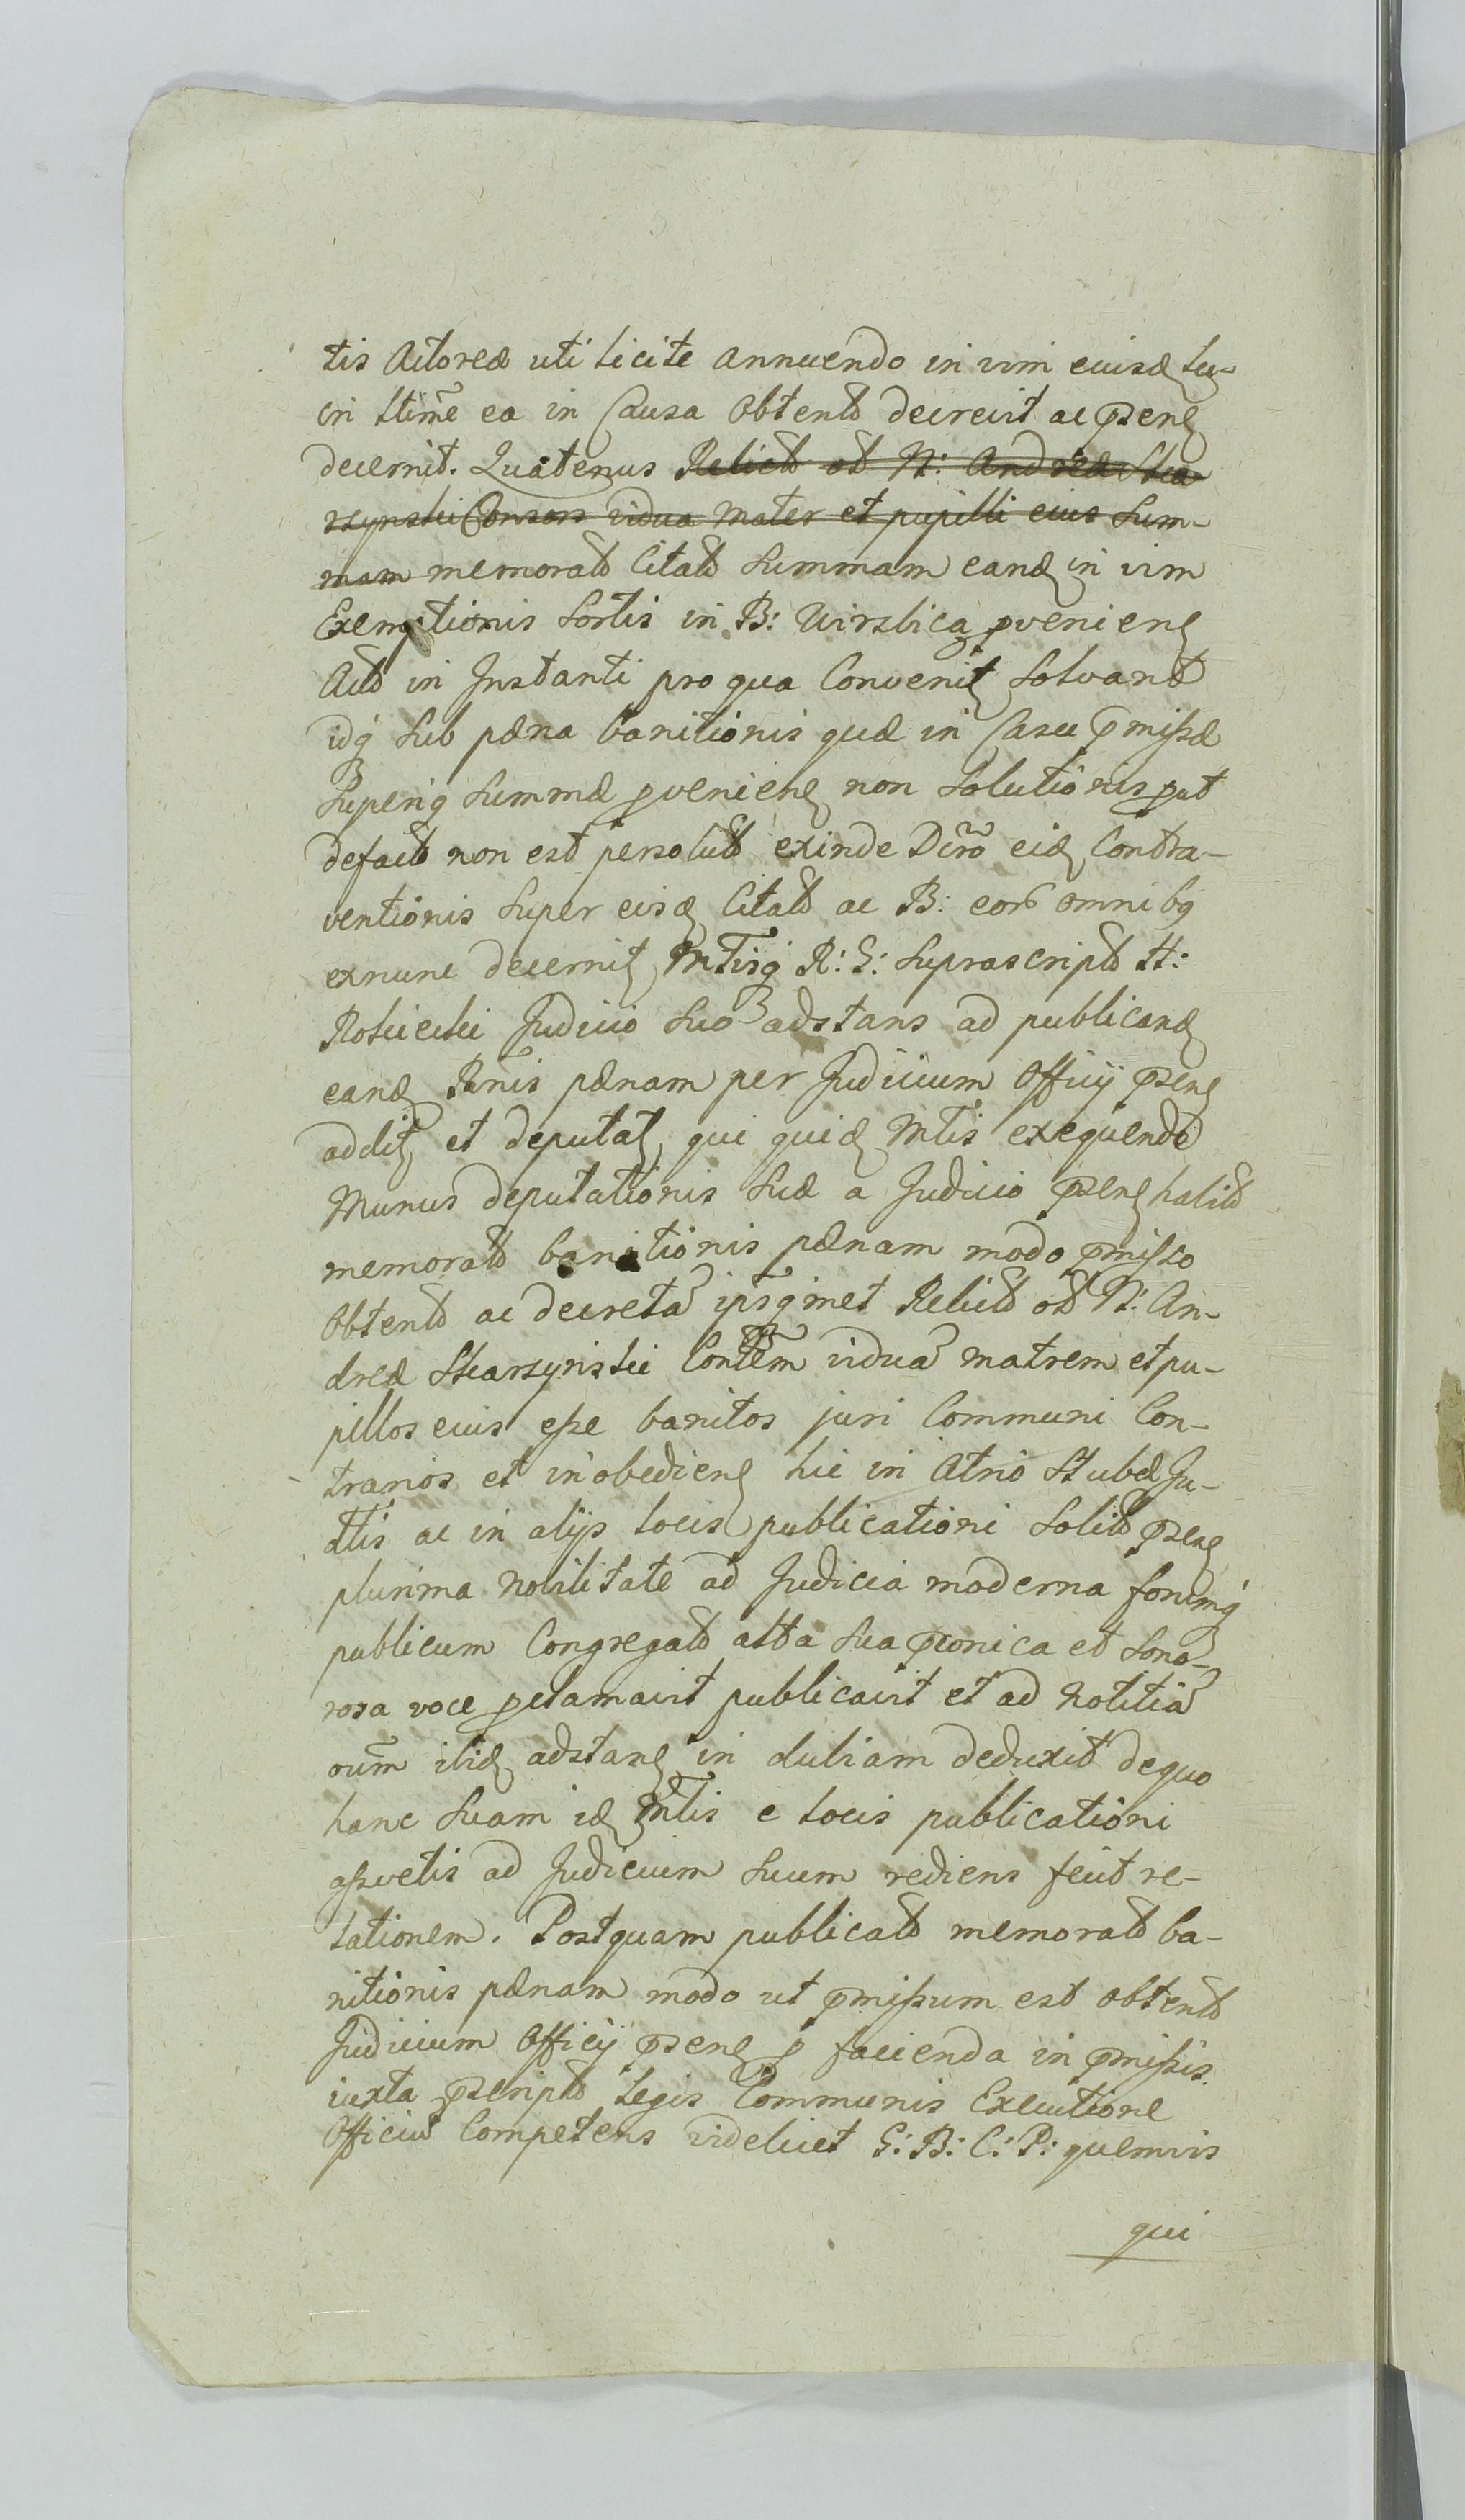 tis Actoreæ uti licite annuendo in vim eiusd lu-
cri ltimē ea in Causa obtent decrevit ac psen
decernit. Quatenus Relict ol N: Andreæ Ska
rzynski Consors vidua Mater et pupilli eius Sum-
mam memorat Citat Summam eand in vim
Exemptionis Sortis in B: Wirzbica pvenien
Act in Instanti pro qua Convenit Solvant
idq sub pæna banitionis quæ in Casu pmissæ
Superiq Summæ pvenien non Solutionis put
defact non est persolut exinde Dcrō eid Contra-
ventionis Super eisd Citat ac B: eor omnibq
exnunc decernit Mtlisq R: G: suprascript H:
Rosciecki Judicio suo adstans ad publicand
eand Bānis pænam per Judicium Officij psen
addit et deputat, qui quid Mtlis exequendo
Munus deputationis Suæ a Judicio psen habit
memorat banitionis pænam modo pmisso
obtent ac decretā ipsqmet Relict ol N: An-
dreæ Skarzynski Contēm viduā matrem et pu-
pillos eius esse banitos juri Communi Con-
trarios et inobedien hic in Atrio Stubæ Ju-
dtlis ac in alijs locis publicationi Solit psen
plurima Nobilitate ad Judicia moderna forumq
publicum Congregat alta Sua pconica et Sono-
rosa voce pclamavit publicavit et ad Notitiā
oūm ibid adstan in dubiam deduxit de quo
hanc Suam id Mtlis e locis publicationi
assvetis ad Judicium Suum rediens fecit re-
lationem. Postquam publicat memorat ba-
nitionis pænam modo ut pmissum est obtent
Judicium Officij psen p facienda in pmissis
iuxta pscript Legis Communis Executione
Officiū Competens videlicet G: B: C: P: quemvis
qui